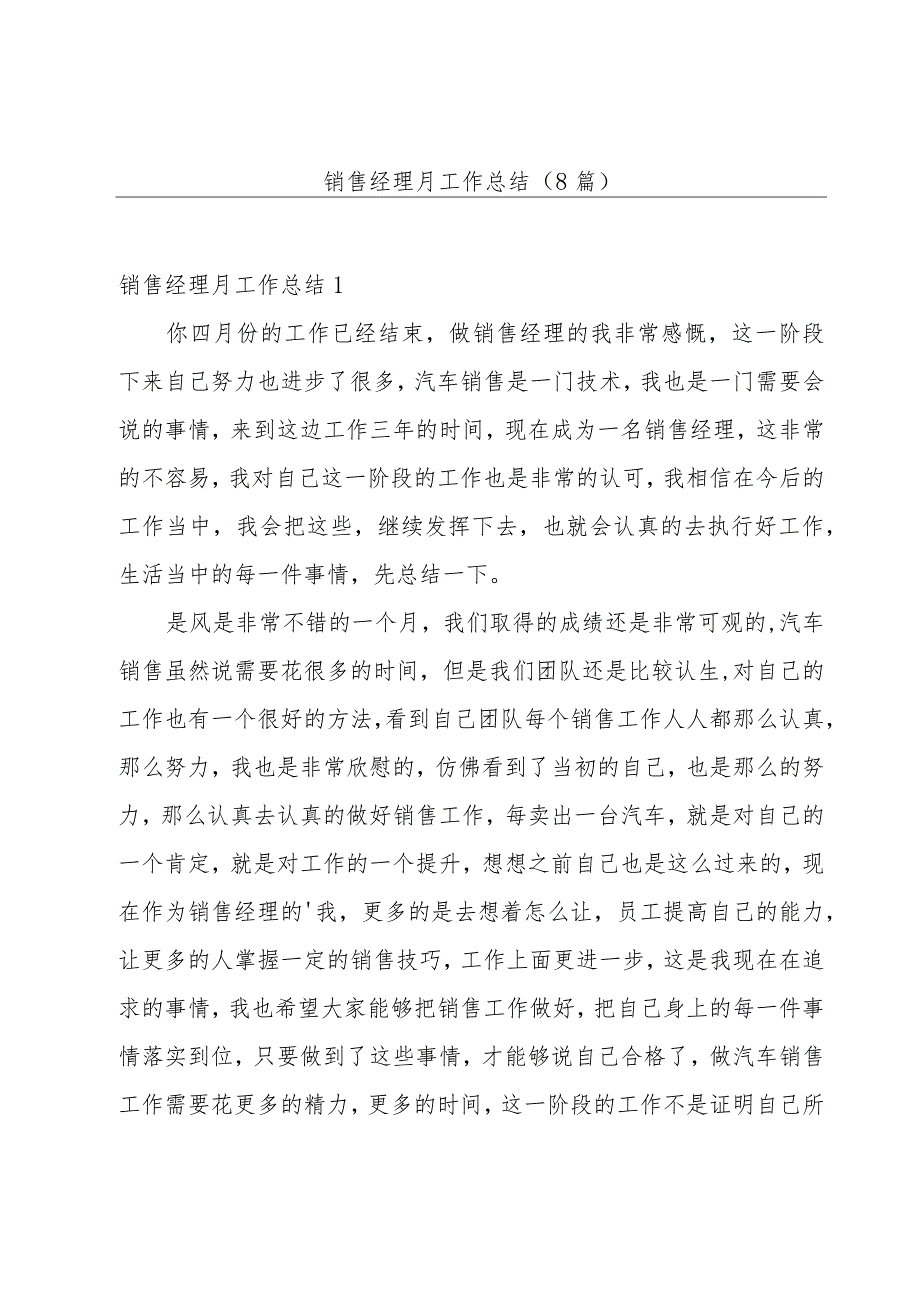 销售经理月工作总结（8 篇）
销售经理月工作总结 1
你四月份的工作已经结束，做销售经理的我非常感慨，这一阶段
下来自己努力也进步了很多，汽车销售是一门技术，我也是一门需要会
说的事情，来到这边工作三年的时间，现在成为一名销售经理，这非常
的不容易，我对自己这一阶段的工作也是非常的认可，我相信在今后的
工作当中，我会把这些，继续发挥下去，也就会认真的去执行好工作，
生活当中的每一件事情，先总结一下。
是风是非常不错的一个月，我们取得的成绩还是非常可观的,汽车
销售虽然说需要花很多的时间，但是我们团队还是比较认生,对自己的
工作也有一个很好的方法,看到自己团队每个销售工作人人都那么认真，
那么努力，我也是非常欣慰的，仿佛看到了当初的自己，也是那么的努
力，那么认真去认真的做好销售工作，每卖出一台汽车，就是对自己的
一个肯定，就是对工作的一个提升，想想之前自己也是这么过来的，现
在作为销售经理的'我，更多的是去想着怎么让，员工提高自己的能力，
让更多的人掌握一定的销售技巧，工作上面更进一步，这是我现在在追
求的事情，我也希望大家能够把销售工作做好，把自己身上的每一件事
情落实到位，只要做到了这些事情，才能够说自己合格了，做汽车销售
工作需要花更多的精力，更多的时间，这一阶段的工作不是证明自己所